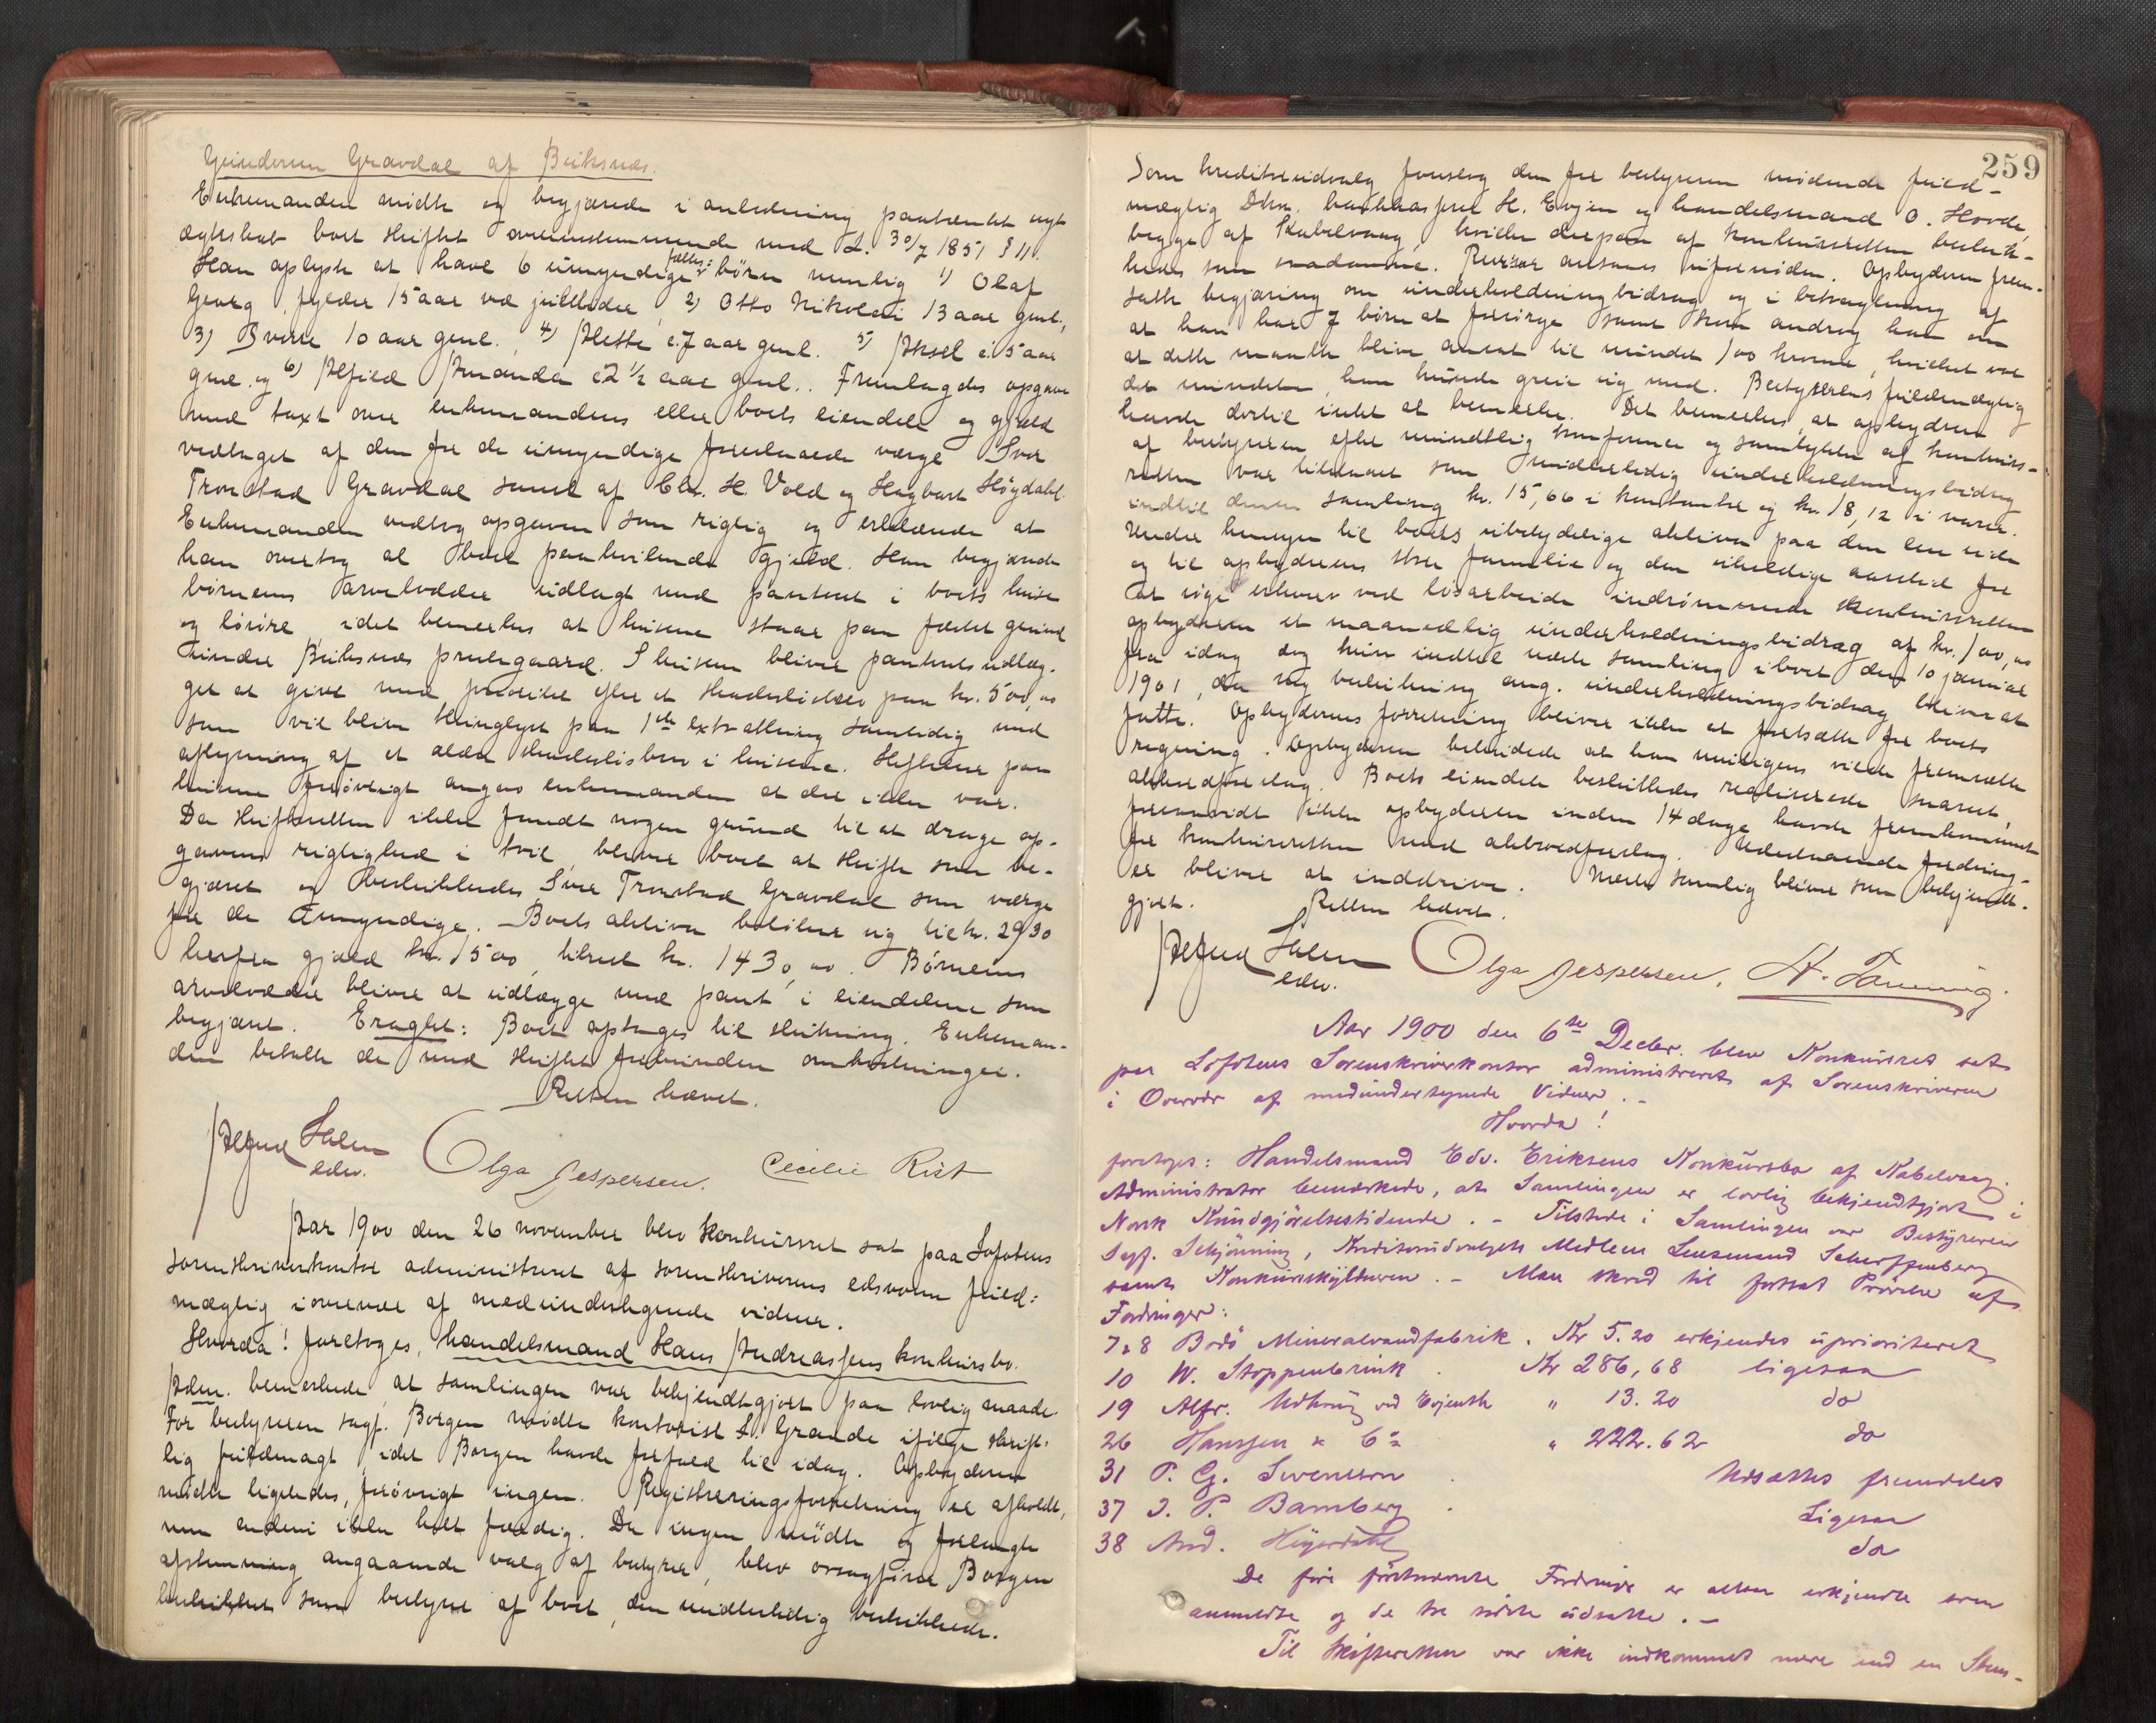 Gravdal af Buksnæs.
Enkemanden mødte og begjærede i anledning paatænkt nyt
ægteskab boet skiftet overensstemmende med L. 30/7 1851 § 11.
Han oplyste at have 6 umyndige fælles: børn nemlig 1) Olaf
Georg, fylder 15 aar ved juletider, 2) Otto Nikolai 13 aar gml.,
3) Sverre 10 aar gml., 4) Mette c. 7 aar gml. 5) Aksel c. 5 aar
gml. og 6) Alfild Amanda c 2 1/2 aar gml.. Fremlagdes opgave
med taxt over enkemandens eller boets eiendele og gjæld
vedtaget af den for de umyndige værge Iver
Tronstad Gravdal samt af Chr. H. Vold og Hagbart Høydahl.
Enkemanden vedtog opgaven som rigtig og erklærede at
han overtog al boet paahvilende gjæld. Han begjærede
børnenes arvelodder udlagt med panteret i boets huse
og løsøre, idet bemerkes at husene staar paa fæstet grund
under Buksnæs prestegaard. I husene bliver panteudlæg-
get at give med prioritet efter et skadesløsbrev paa kr. 500,00
som vil blive thinglyst paa 1ste extrathing samtidig med
aflysning af et ældre skadesløsbrev i husene. Heftelser paa
husene forøvrigt angav enkemanden at der ikke var.
Da skifteretten ikke fandt nogen grund til at drage op-
gavens rigtighed i tvil, bliver boet at skifte som be-
gjæret og beskikkedes Iver Tronstad Gravdal som værge
for de umyndige. Boets aktiva beløber sig til kr. 2930
herfra gjæld kr. 1500, tilrest kr. 1430,00. Børnenes
arvelodder bliver at udlægge med pant i eiendelene som
begjæret. Eragtet: Boet optages til slutning. Enkeman-
den betalte de med skiftet forbundne omkostninger.
Retten hævet.
Alfred Halen
edsv.
Olga Jespersen.
Cecilie Rist
Aar 1900 den 26 november blev konkursret sat paa Lofotens
sorenskriverkontor administreret af sorenskriverens edsvorne fuld=
mægtig i overvær af medundertegnede vidner.
Hvorda! foretoges, handelsmand Hans Andreassens konkursbo.
Adm. bemerkede, at samlingen var bekjendtgjort paa lovlig maade.
For bestyreren sagf. Borgen mødte kontorist L. Grande ifølge skrift=
lig fuldmagt, idet Borgen havde forfald til idag. Opbyderen
mødte ligeledes, forøvrigt ingen. Registreringsforretning er afholdt,
men endnu ikke helt færdig. Da ingen mødte og forlangte
afstemning angaaende valg af bestyrer, blev ovsagfører Borgen
beskikket som bestyrer af boet, den midlertidig beskikkede.
259
Som kreditorudvalg foreslog den for bestyreren mødende fuld-
mægtig Dhrr. bankkasserer H. Evjen og handelsmand O. Hovde,
begge af Kabelvaag, hvilke derpaa af konkursretten beskik-
kedes som saadanne. Revisor ansaaes ufornøden. Opbyderen frem-
satte begjæring om underholdningsbidrag og i betragtning af
at han har 7 børn at forsørge samt kone androg han om
at dette maatte blive ansat til mindst 100 kroner, hvilket var
det mindste, han kunde greie sig med. Bestyrerens fuldmægtig
havde dertil intet at bemerke. Det bemerkes, at opbyderen
af bestyreren efter mundtlig konference og samtykke af konkurs-
retten var tilstaaet som midlertidig underholdningsbidrag
indtil denne samling kr. 15,66 i kontanter og kr. 18,12 i varer.
Under hensyn til boets ubetydelige aktiva paa den ene side
og til opbyderens store familie og den uheldige aarstid for
at søge erhverv ved løsarbeide indrømmede konkursretten
opbyderen et maanedlig underholdningsbidrag af kr. 100,00
fra idag dog kun indtil næste samling i boet den 10 januar
1901, da ny beslutning ang. underholdningsbidrag bliver at
fatte. Opbyderens forretning bliver ikke at fortsætte for boets
regning. Opbyderen bebudede at han muligens vilde fremsætte
akkordforslag. Boets eiendele besluttedes realiserede snarest,
forsaavidt ikke opbyderen inden 14 dage havde fremkommet
for konkursretten med akkordforslag. Udestaaende fordring-
er bliver at inddrive. Næste samling bliver som bekjendt-
gjort. Retten hævet.
Alfred Halen
edsv.
Olga Jespersen.
Aar 1900 den 6te Decbr. blev Konkursret sat
paa Lofotens Sorenskriverkontor administreret af Sorenskriveren
i Overvær af medundertegnede Vidner. -
Hvorda!
foretoges: Handelsmand Edv. Eriksens Konkursbo af Kabelvaag.
Administrator bemærkede, at Samlingen er lovlig bekjendtgjort i
Norsk Kundgjörelsestidende. - Tilstede i Samlingen var Bestyreren
Sagf. Schjönning, Kreditorudvalgets Medlem Lensmand Scharffenberg
samt Konkursskyldneren. - Man skred til fortsat Prövelse af
Fordringer:
7 & 8 Bodö Mineralvandfabrik. Kr 5.20 erkjendes uprioriteret
10 W. Stoppenbrink . Kr 286,68 ligesaa
19 Alfr. ved Evjenth " 13.20 do
26 Hanssen & Co " 222.62 do
31 P. G. Svensson . Udsættes fremdeles
37 J. P. Bamberg . Ligesaa
38 And. do
De fire förstnævnte Fordringer er altsaa erkjendte som
anmeldte og de tre sidste udsatte. -
Til Skifteretten var ikke indkommet mere end en Stem-